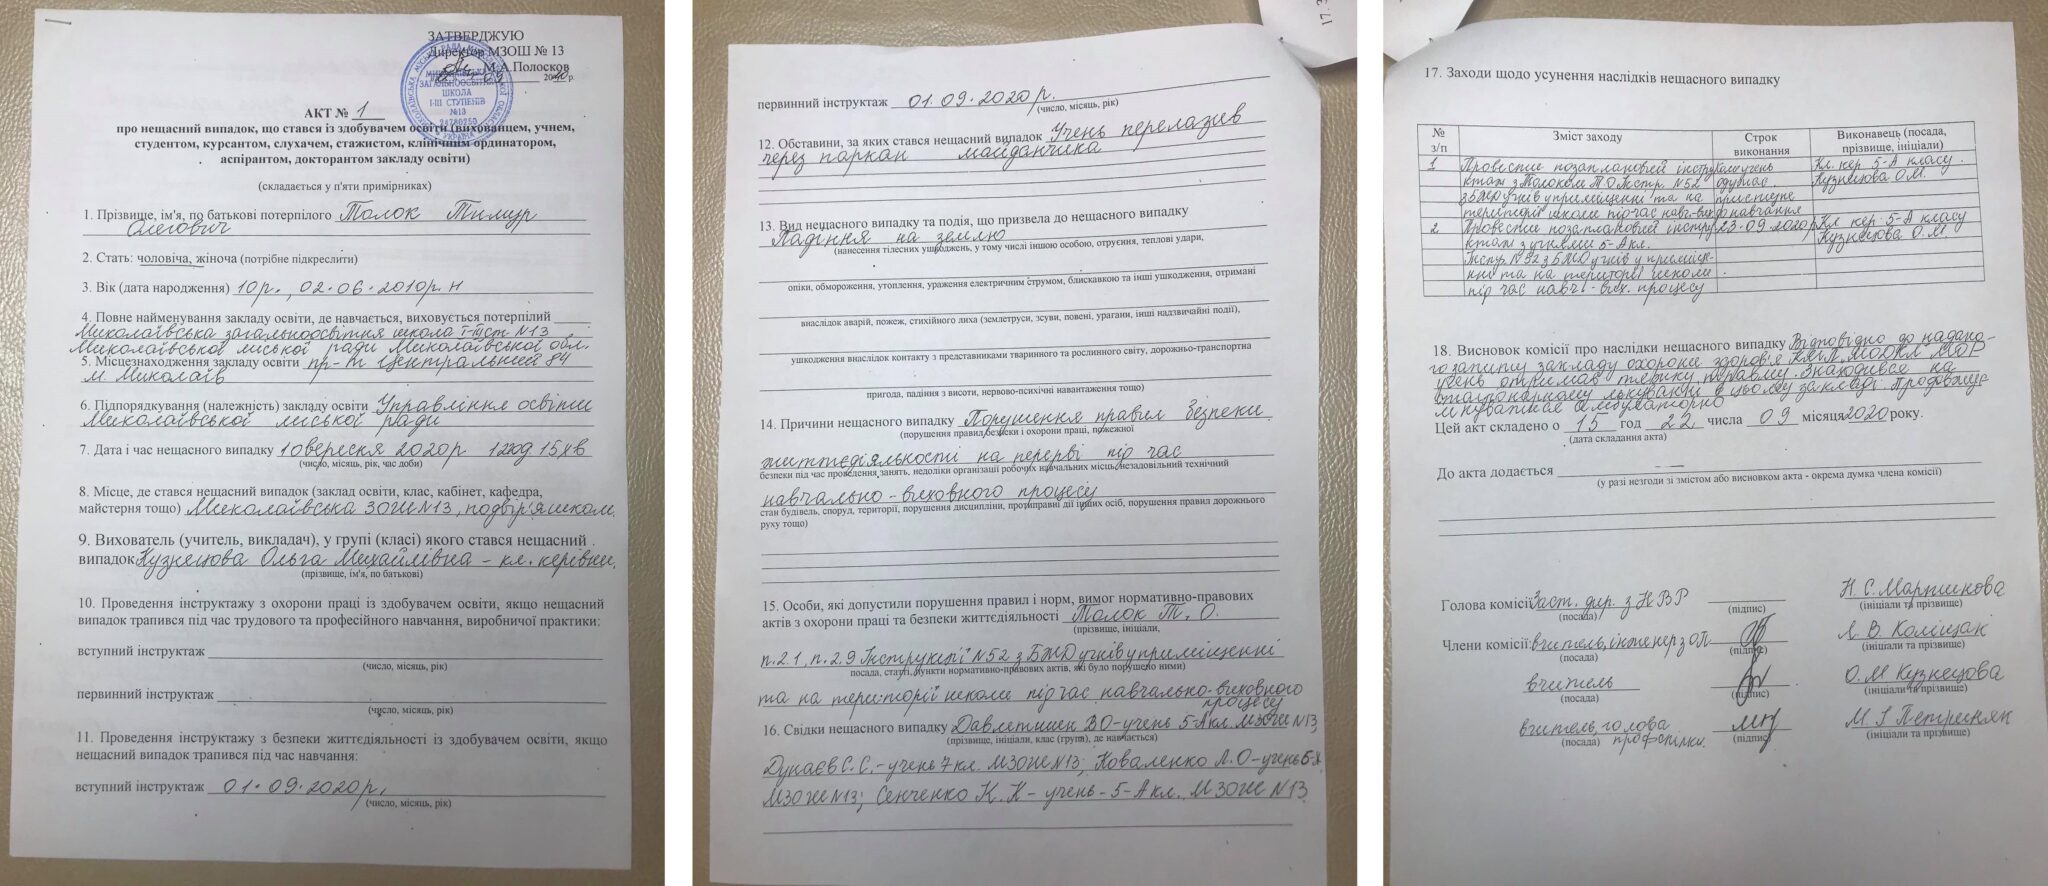 ЗАТВЕРДЖУЮ
Директор МЗОШ № 13
М.А.Полосков
20 р.
МИКОЛАЇВСЬКА
ЗАГАЛЬНООСВІТНЯ
ШКОЛА
І-ІІІ СТУПЕНІВ
№13
УКРАЇНА
АКТ № 1
про нещасний випадок, що стався із здобувачем освіти (вихованцем, учнем,
студентом, курсантом, слухачем, стажистом, клінічним ординатором,
аспірантом, докторантом закладу освіти)
(складається у п'яти примірниках)
1. Прізвище, ім'я, по батькові потерпілого Толок Тимур
Олегович
2. Стать: чоловіча, жіноча (потрібне підкреслити)
3. Вік (дата народження) 10р., 02.06.2010р.н
4. Повне найменування закладу освіти, де навчається, виховується потерпілий
Миколаївська загальноосвітня школа І-ІІІст №13
Миколаївської міської ради Миколаївської обл.
5. Місцезнаходження закладу освіти пр-т Центральний 84
м. Миколаїв
6. Підпорядкування (належність) закладу освіти Управління освіти
Миколаївської міської ради
7. Дата і час нещасного випадку 10вересня 2020р 12год 15хв
(число, місяць, рік, час доби)
8. Місце, де стався нещасний випадок (заклад освіти, клас, кабінет, кафедра,
майстерня тощо) Миколаївська ЗОШ №13, подвір'я школи
9. Вихователь (учитель, викладач), у групі (класі) якого стався нещасний
випадок Кузнецова Ольга Михайлівна - кл. керівни
(прізвище, ім'я, по батькові)
10. Проведення інструктажу з охорони праці із здобувачем освіти, якщо нещасний
випадок трапився під час трудового та професійного навчання, виробничої практики:
вступний інструктаж
(число, місяць, рік)
первинний інструктаж
(число, місяць, рік)
11. Проведення інструктажу з безпеки життєдіяльності із здобувачем освіти, якщо
нещасний випадок трапився під час навчання:
вступний інструктаж 01.09.2020р,
(число, місяць, рік)
первинний інструктаж 01.09.2020р.
(число, місяць, рік)
12. Обставини, за яких стався нещасний випадок Учень перелазив
через паркан майданчика
13. Вид нещасного випадку та подія, що призвела до нещасного випадку
Падіння на землю
(нанесення тілесних ушкоджень, у тому числі іншою особою, отруєння, теплові удари,
опіки, обмороження, утоплення, ураження електричним струмом, блискавкою та інші ушкодження, отримані
внаслідок аварій, пожеж, стихійного лиха (землетруси, зсуви, повені, урагани, інші надзвичайні події),
ушкодження внаслідок контакту з представниками тваринного та рослинного світу, дорожньо-транспортна
пригода, падіння з висоти, нервово-психічні навантаження тощо)
14. Причини нещасного випадку Порушення правил безпеки
(порушення правил безпеки і охорони праці, пожежної
життєдіяльності на перерві під час
безпеки під час проведення занять, недоліки організації робочих навчальних місць, незадовільний технічний
навчально-виховного процесу
стан будівель, споруд, території, порушення дисципліни, протиправні дії інших осіб, порушення правил дорожнього
руху тощо)
15. Особи, які допустили порушення правил і норм, вимог нормативно-правових
актів з охорони праці та безпеки життєдіяльності Толок Т. О.
(прізвище, ініціали,
п.2.1, п.2.9 Інструкції №52 з БЖД учнів у приміщенні
посада, статті, пункти нормативно-правових актів, які було порушено ними)
та на території школи під час навчально-виховного
процесу
16. Свідки нещасного випадку ВО-учень 5-А кл. МЗОШ №13
(прізвище, ініціали, клас (група), де навчається)
Дунаєв С. С.-учень 7 кл. МЗОШ №13; Коваленко Л.О-учень 5-А
МЗОШ №13; Сенченко К. К- учень-5-А кл. МЗОШ №13
17. Заходи щодо усунення наслідків нещасного випадку
№ з/п Зміст заходу Строк виконання Виконавець (посада, прізвище, ініціали)
1 Провести позаплановий інстру- Коли учень Кл. кер. 5-А класу.
ктаж з Толоком Т.О Інстр. №52 одужає. Кузнецова О.М.
з БЖД учнів у приміщенні та на приступе
території школи під час навч.-вих. до навчання
2 Провести позаплановий інстру- 23.09.2020р Кл. кер. 5-А класу
ктаж з учнями 5-А кл. Кузнецова О.М.
Інстр. №52 з БЖД учнів у приміще-
нні та на території школи
під час навч-вих. процесу
18. Висновок комісії про наслідки нещасного випадку Відповідно до надано-
го запиту закладу охорони здоров'я КНП МОДКЛ МОР
учень отримав травму. Знаходився на
стаціонарному лікуванні в цьому закладі. Продовжує
лікуватися амбулаторно
Цей акт складено о 15 год 22 числа 09 місяця 2020 року.
(дата складання акта)
До акта додається — —
(у разі незгоди зі змістом або висновком акта - окрема думка члена комісії)
Голова комісії Заст. дир. з НВР Н. С. Мартинова
(посада) (підпис) (ініціали та прізвище)
Члени комісії: вчитель, інженер з ОП Л. В. Коліщак
(посада) (підпис) (ініціали та прізвище)
вчитель О.М Кузнецова
(посада) (підпис) (ініціали та прізвище)
вчитель, голова М. І.
(посада) профспілки. (підпис) (ініціали та прізвище)